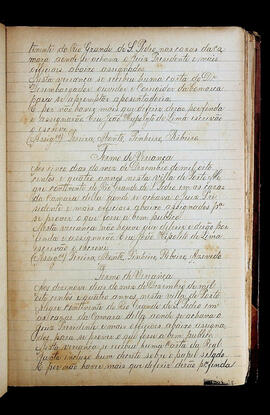 tinente do Rio Grande de S. Pedro nas casas da Ca
mara aonde se achava o Juiz Presidente e mais
officiaes abaixo assignados
Nesta vereança se recebeu huma carta do Dr
Desembargador ouvidor e Corregedor da Comarca
para se apromptar aposentadoria
E por não haver mais que deferir derão por finda
e assignarão Eu João Hypolito de Lima escrivão
o escrevi
(Assigdos) Pereira, Monte, Pinheiro, Ribeiro
Termo de Vereança
Aos cinco dias do mez de Dezembro de mil oito
centos e quatro annos nesta Villa de Porto Ale
gre continente do Rio Grande de S. Pedro em as casas
da Camara della aonde se achava o Juiz Pre
sidente e mais officiaes abaixo assignados pa
se prover o que fosse a bem publico
Nesta vereança não houve que deferir e derão por
finda e assignarão Eu João Hipolito de Lima
escrivão o escrevi
(Assigdos) Pereira, Monte, Pinheiro, Ribeiro
Termo de Vereança
Aos dezenove dias do mez de Dezembro de mil
oito centos e quatro annos, nesta villa de Porto
Alegre Continente do Rio Grande de S. Pedro em
as cazas da Camara della aonde se achava o
Juiz Presidente e mais officiaes abaixo assigna
dos, para se prover o que fosse a bem publico
Nesta vereança se recebeu huma Carta da Real
Junta incluso hum decreto sobre o papel sellado
E por não haver mais que deferir derão por finda